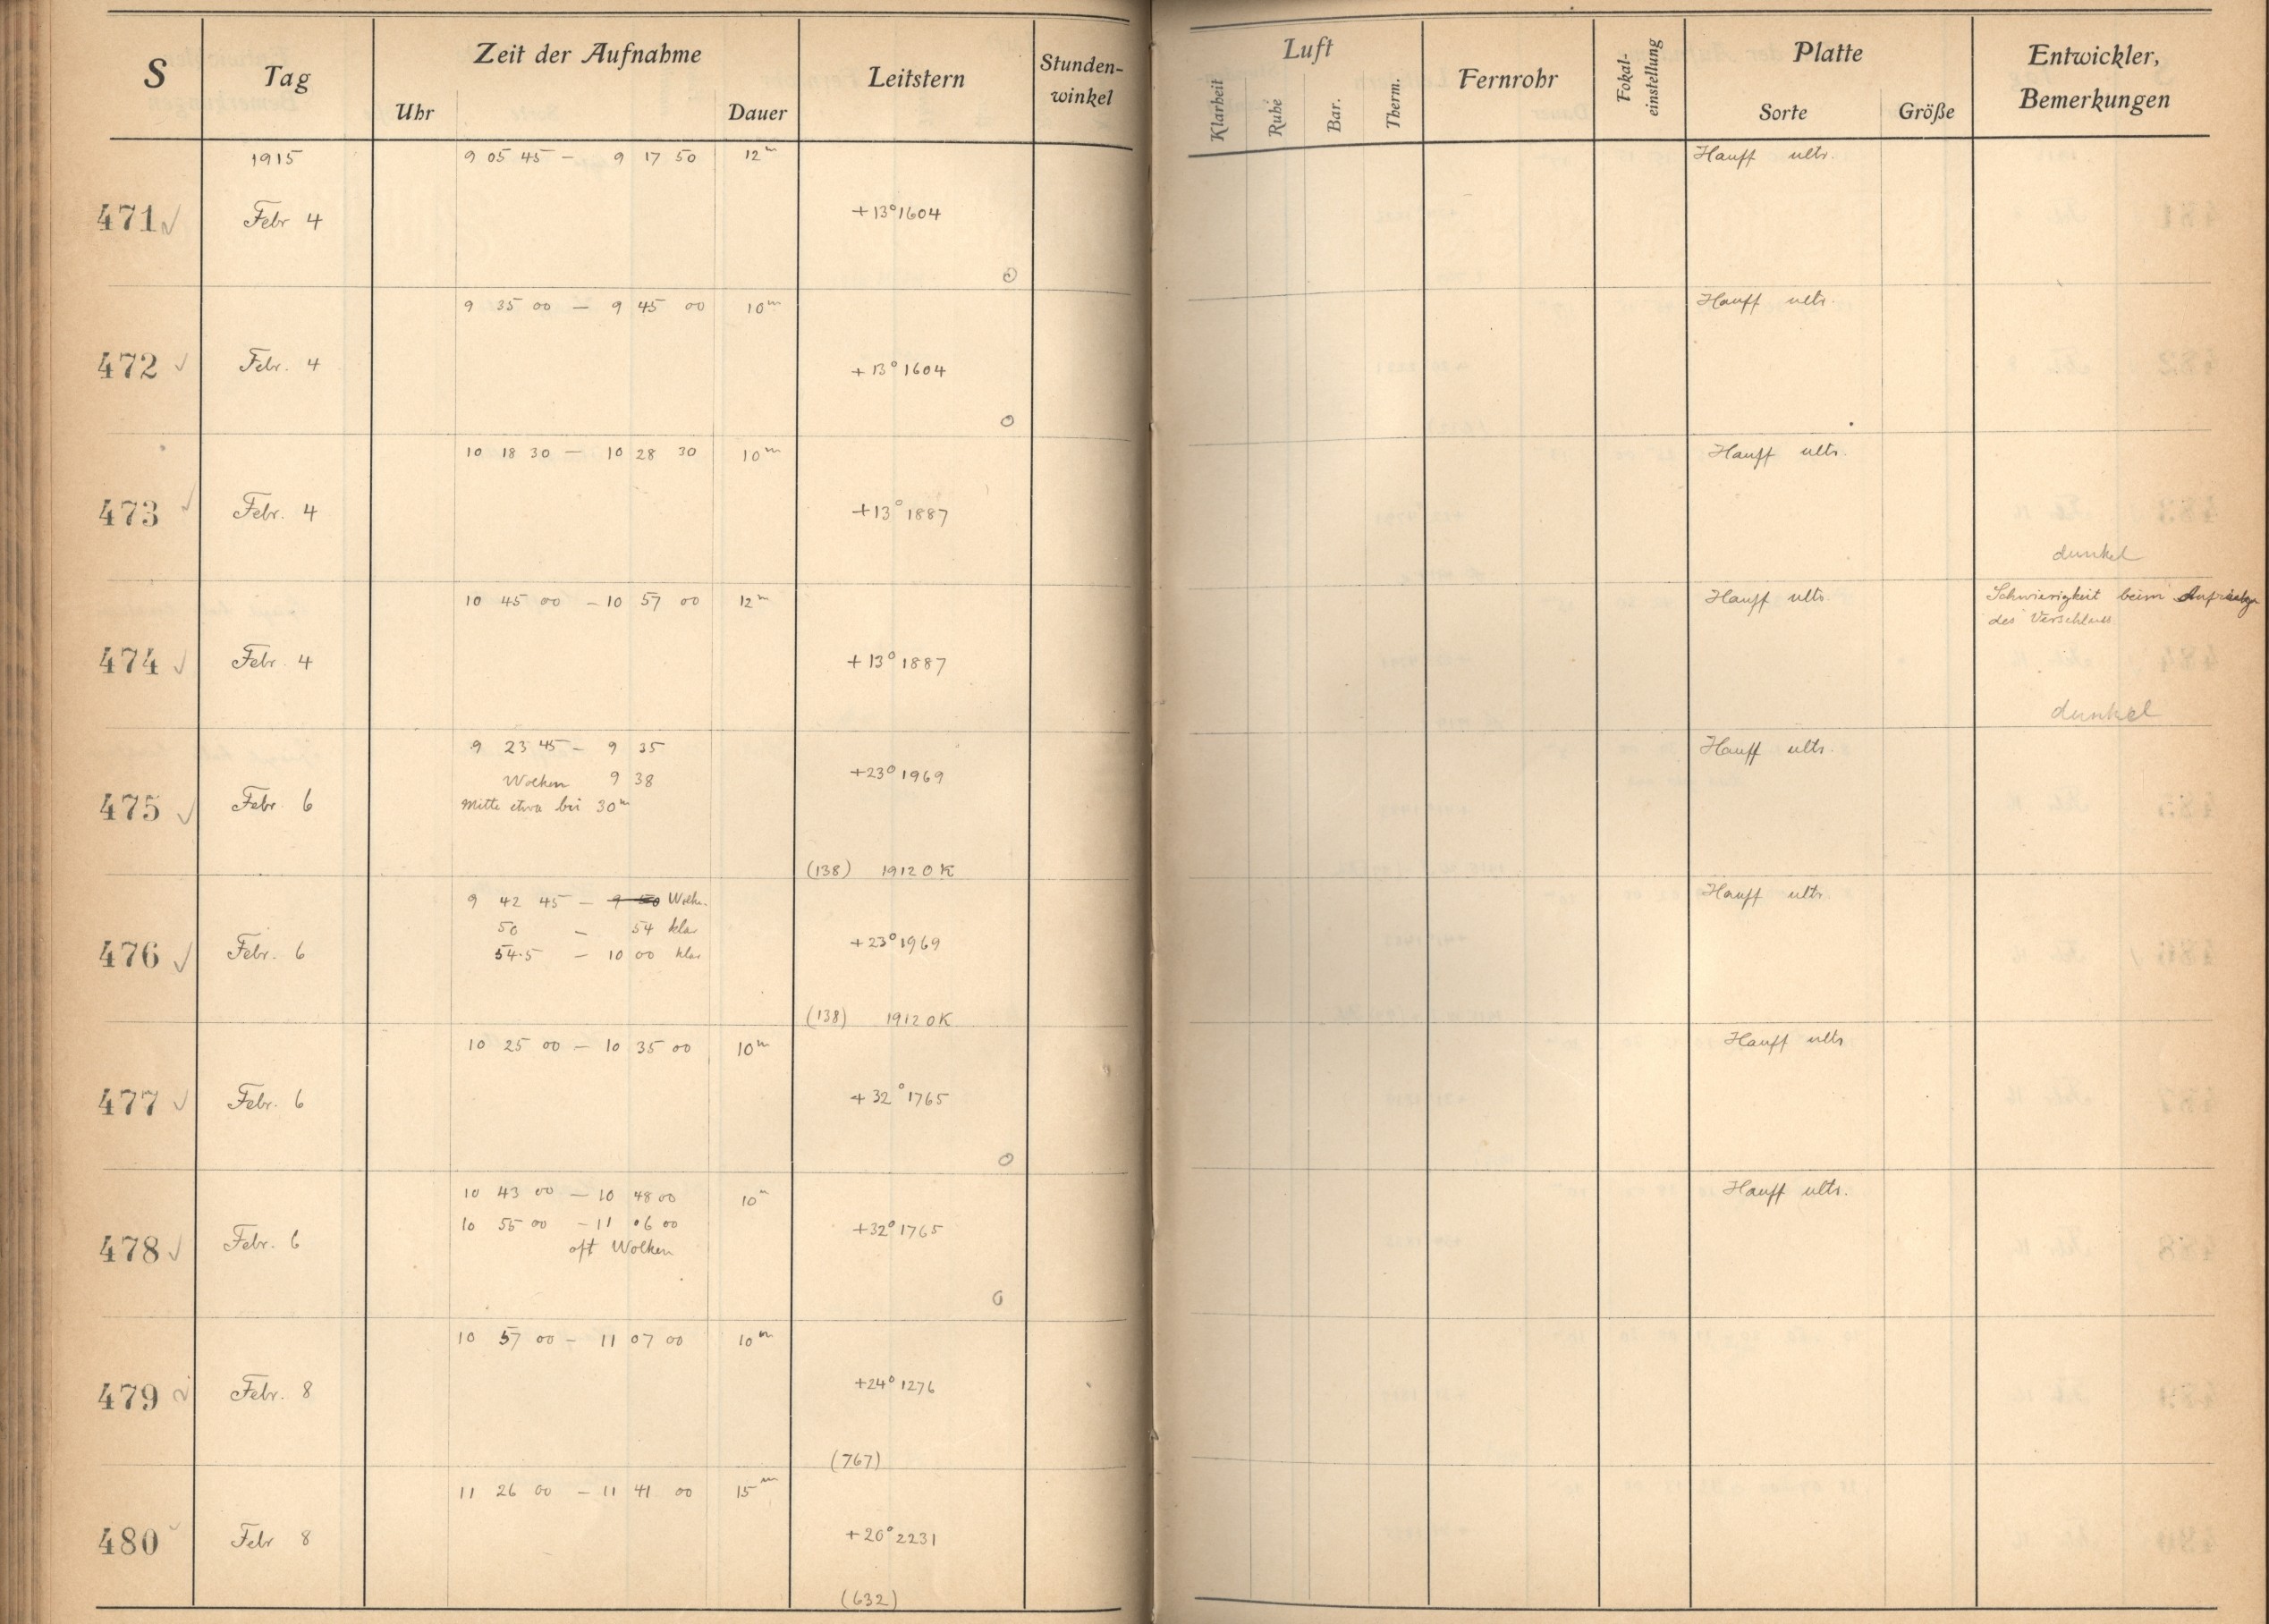 S Tag Zeit der Aufnahme Leitstern Stunden-
winkel
Uhr Dauer
Luft Fernrohr Fokal-
einstellung Platte Entwickler,
Bemerkungen
Klarheit Ruhe Bar. Therm. Sorte Größe
1915 9 05 45 – 9 17 50 12m Hauff ultr.
471 Febr 4 +13° 1604
9 35 00 – 9 45 00 10m Hauff ultr.
472 Febr. 4 +13° 1604
10 18 30 – 10 28 30 10m Hauff ultr.
473 Febr. 4 +13° 1887
dunkel
10 45 00 – 10 57 00 12m Hauff ultr. Schwierigkeit beim
des Verschluss
474 Febr. 4 +13° 1887
dunkel
9 23 45 – 9 35 Hauff ultr.
Wolken 9 38 +23° 1969
475 Febr. 6 Mitte etwa bei 30m
(138) 1912 OK
9 42 45 – Wolk. Hauff ultr.
50 – 54 klar
476 Febr. 6 54.5 – 10 00 klar +23° 1969
(138) 1912 OK
10 25 00 – 10 35 00 10m Hauff ultr
477 Febr. 6 +32° 1765
10 43 00 – 10 48 00 10m Hauff ultr.
10 55 00 – 11 06 00 +32° 1765
478 Febr. 6 oft Wolken
10 57 00 – 11 07 00 10m
479 Febr. 8 +24° 1276
(767)
11 26 00 – 11 41 00 15m
480 Febr 8 +20° 2231
(632)